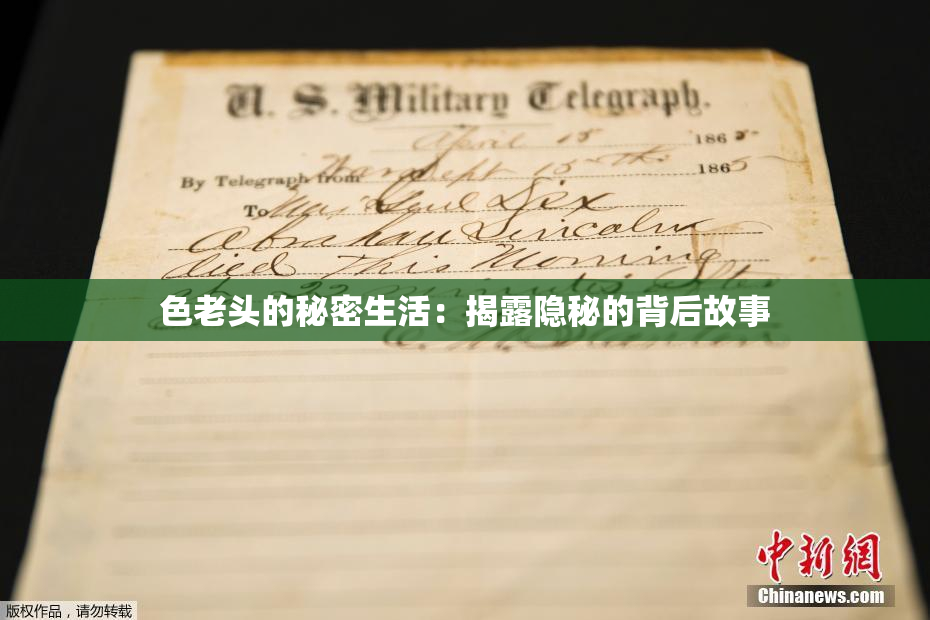 U. S. Military Telegraph.
April 15 1865
By Telegraph from War Dept 15th 1865
To Maj Genl Dix
Abraham Lincoln
died This Morning
at 22 minutes after
色老头的秘密生活：揭露隐秘的背后故事
E. M. Stanton
中新网
Chinanews.com
版权作品，请勿转载